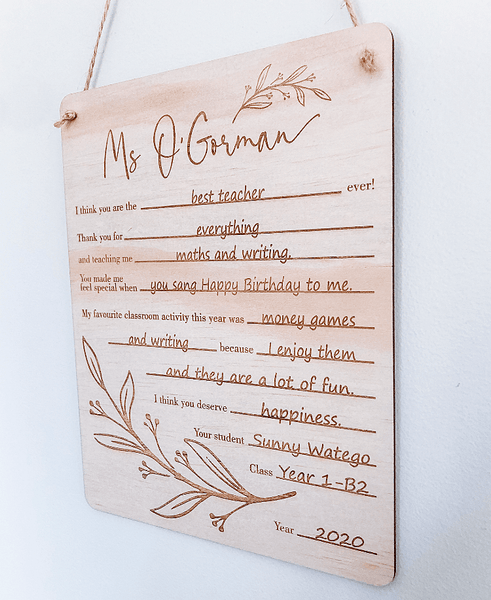 Ms O'Gorman
I think you are the best teacher ever!
Thank you for everything
and teaching me maths and writing.
You made me
feel special when you sang Happy Birthday to me.
My favourite classroom activity this year was money games
and writing because I enjoy them
and they are a lot of fun.
I think you deserve happiness.
Your student Sunny Watego
Class Year 1-B2
Year 2020